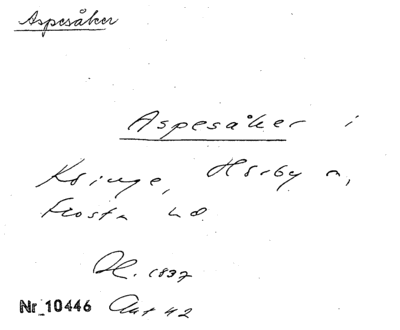 Aspesåker
Aspesåker i
Hörby n,
Frosta hd.
1837
Nr 10446 Akt 42